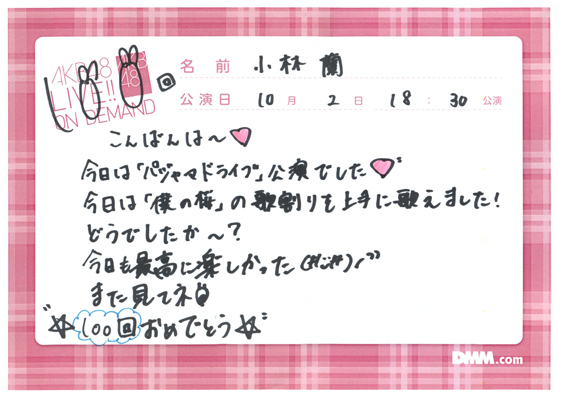 AKB48
LIVE!!
ON DEMAND
AKB
48
名前 小林 蘭
公演日 10月 2日 18:30公演
こんばんは〜♥
今日は「パジャマドライブ」公演でした♥
今日は「僕の桜」の歌割りを上手に歌えました!
どうでしたか〜?
今日も最高に楽しかった
また見てネ
☆100回おめでとう☆
DMM.com